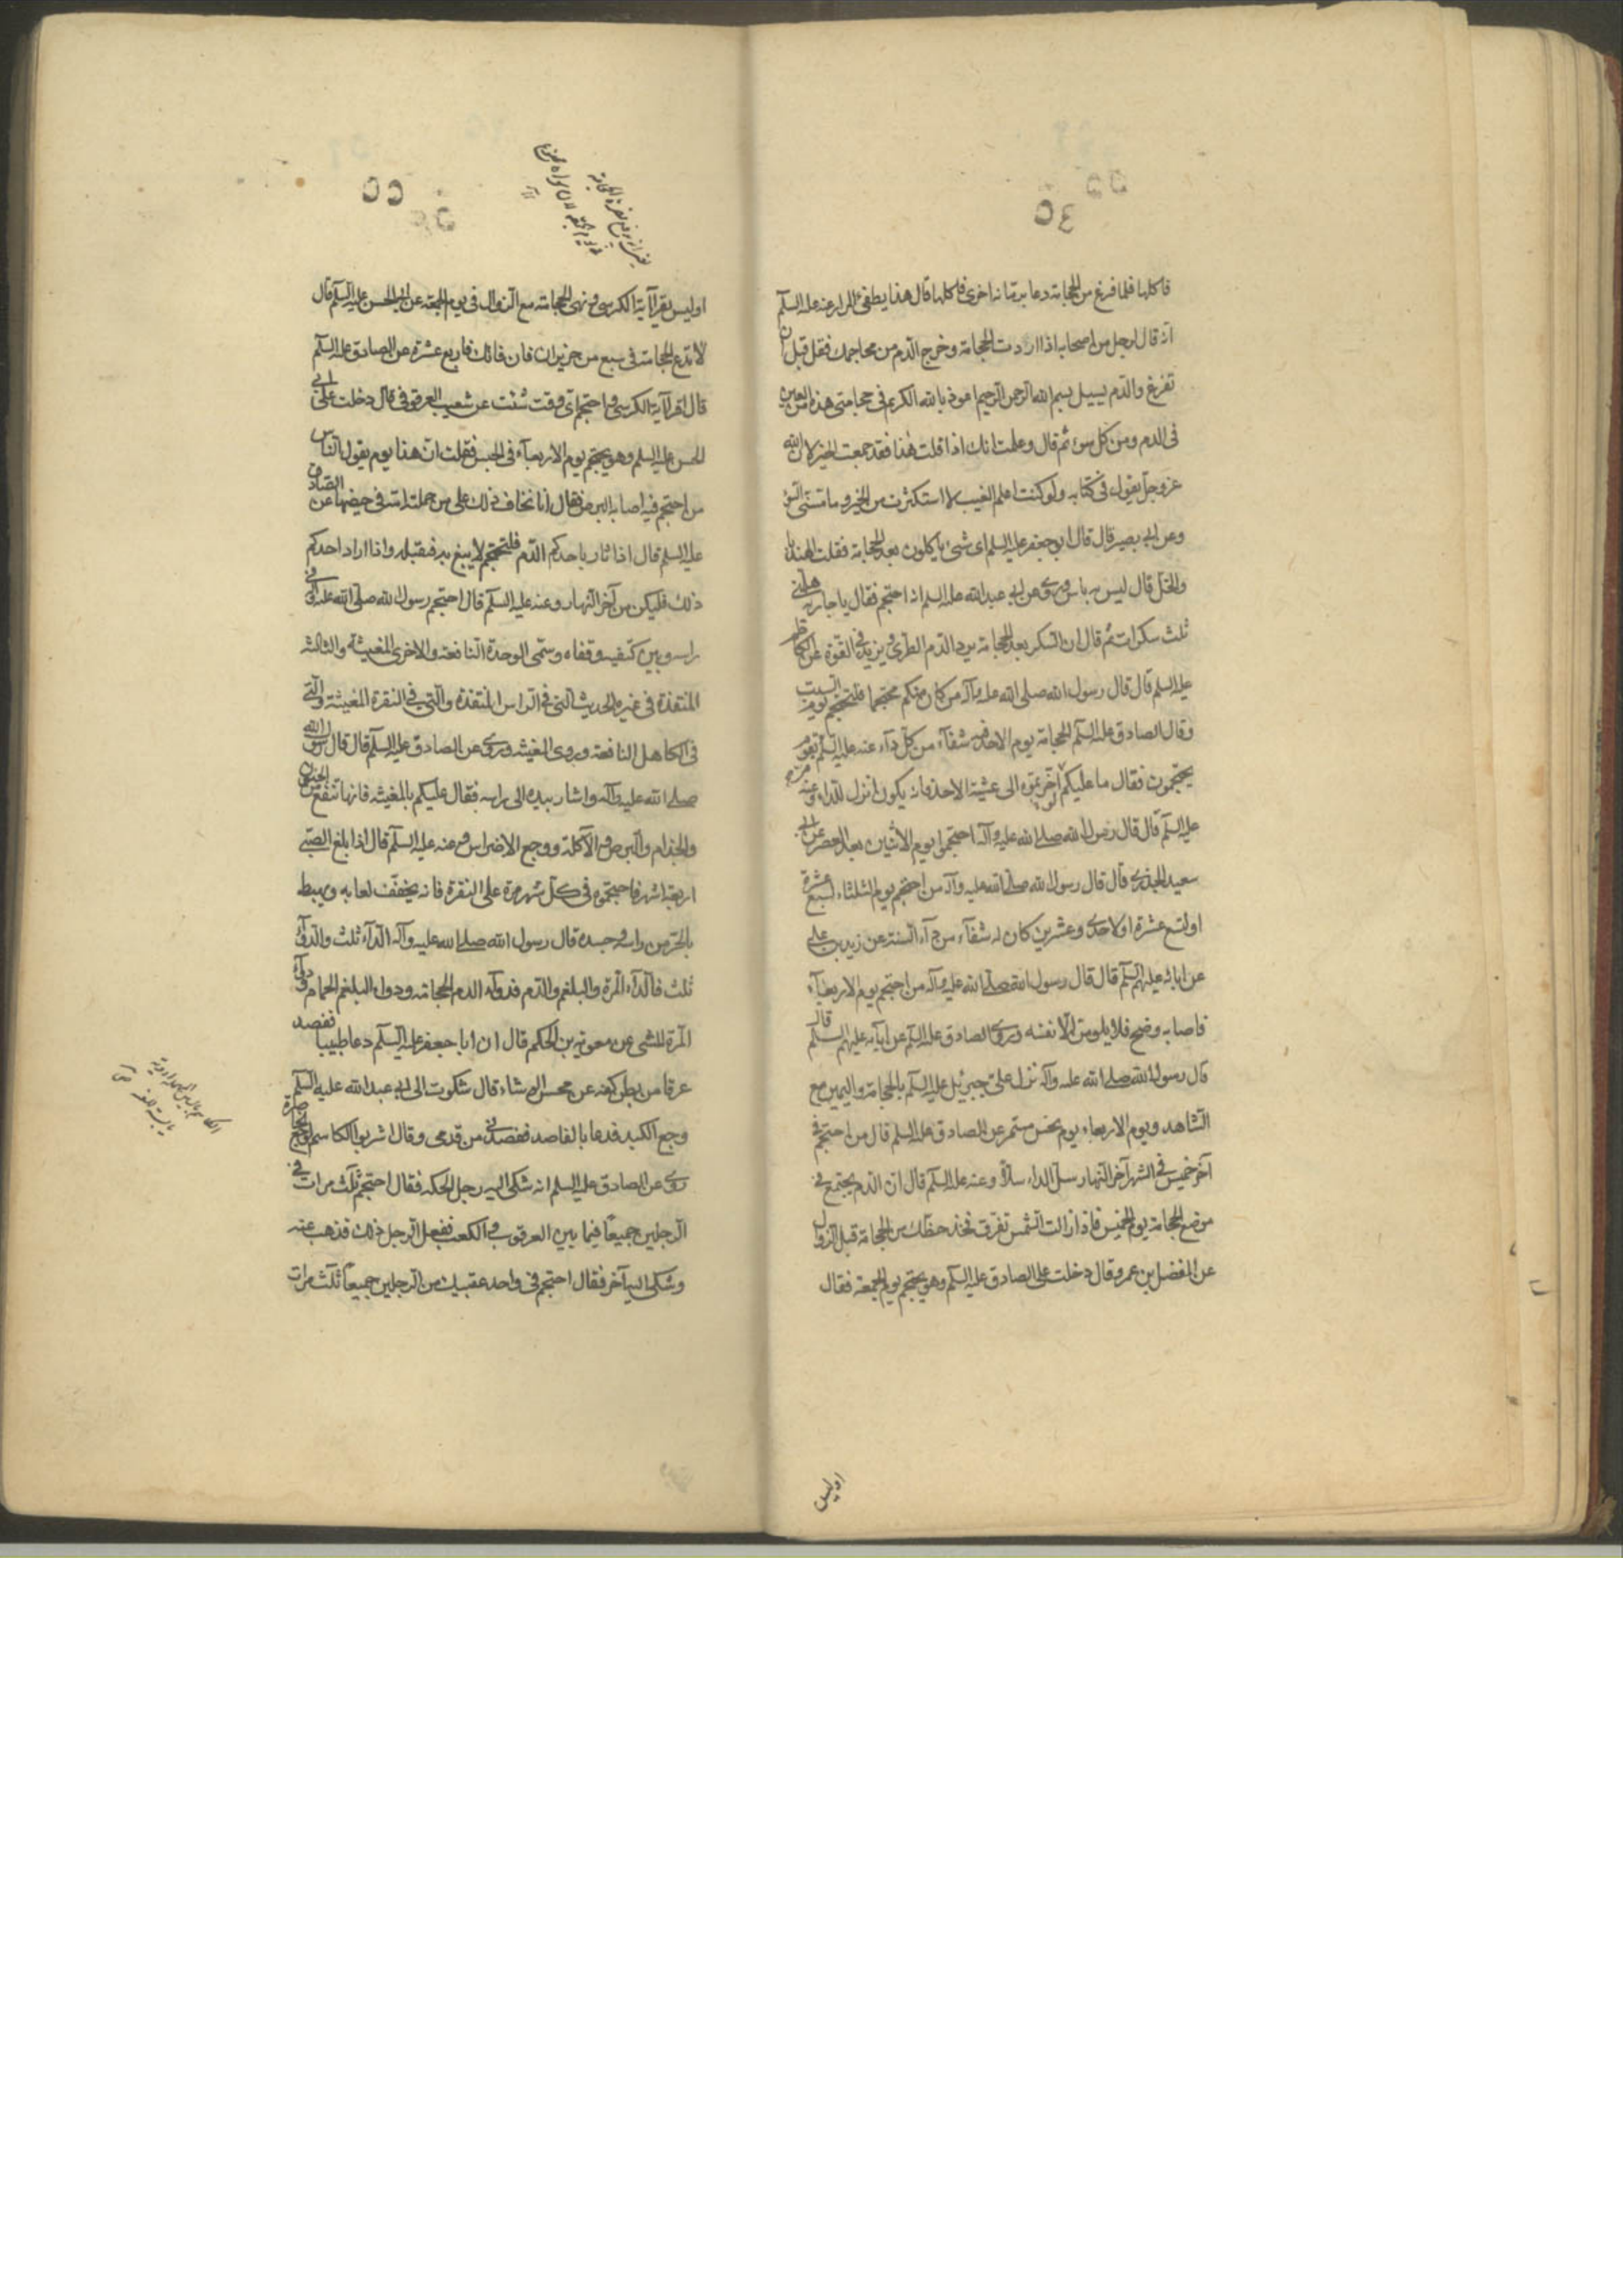 ٥٤
فاكلها فلما فرغ من الحجامة دعا برمانة اخرى فاكلها قال هذا يطفئ المرار عنه عليه السلم
انه قال لرجل من اصحابه اذا اردت الحجامة وخرج الدم من محاجمك فقل قبل ان
تفرغ والدم يسيل بسم الله الرحمن الرحيم اعوذ بالله الكريم فى حجامتى هذه من العين
فى الدم ومن كل سوء ثم قال وعلمت انك اذا قلت هذا فقد جمعت الخير لان الله
عز وجل يقول فى كتابه ولو كنت اعلم الغيب لا استكثرت من الخير وما مسنى السوء
وعن ابى بصير قال قال ابو جعفر عليه السلم اى شئ ياكلون بعد الحجامة فقلت الهندبا
والخل قال ليس به باس وروى عن ابى عبد الله عليه السلم انه احتجم فقال يا جارية هلمى
ثلث سكرات ثم قال ان السكر بعد الحجامة يرد الدم الطرى ويزيد فى القوة عن الكاظم
عليه السلم قال قال رسول الله صلى الله عليه وآله من كان منكم محتجما فليحتجم يوم السبت
وقال الصادق عليه السلم الحجامة يوم الاحد فيه شفآء من كل دآء عنه عليه السلم بقوم
يحتجمون فقال ما عليكم لو اخرتموه الى عشية الاحد فانه يكون انزل للداء وعنه
عليه السلم قال قال رسول الله صلى الله عليه وآله احتجموا يوم الاثنين بعد العصر عن ابى
سعيد الخدرى قال قال رسول الله صلى الله عليه وآله من احتجم يوم الثلثاء لسبع عشرة
او لتسع عشرة او لاحدى وعشرين كان له شفآء من دآء السنة عن زيد بن على
عن ابائه عليهم السلم قال قال رسول الله صلى الله عليه وآله من احتجم يوم الاربعآء
فاصابه وضح فلا يلومن الا نفسه وروى الصادق عليه السلم عن ابآئه عليهم السلم قال
قال رسول الله صلى الله عليه وآله نزل على جبرئيل عليه السلم بالحجامة واليمين مع
الشاهد ويوم الاربعاء يوم نحس مستمر عن الصادق عليه السلم قال من احتجم فى
آخر خميس فى الشهر آخر النهار سل الداء سلا وعنه عليه السلم قال ان الدم يجتمع فى
موضع الحجامة يوم الخميس فاذا زالت الشمس تفرق فخذ حظك من الحجامة قبل الزوال
عن المفضل بن عمر وقال دخلت على الصادق عليه السلم وهو يحتجم يوم الجمعة فقال
اوليس
٥٥
اوليس يقرا آية الكرسى ونهى الحجامة مع الزوال فى يوم الجمعة عن ابى الحسن عليه السلم قال
لا تدع الحجامة فى سبع من حزيران فان فاتك فاربع عشرة عن الصادق عليه السلم
قال اقرا آية الكرسى واحتجم اى وقت شئت عن شعيب العرقوفى قال دخلت على ابى
الحسن عليه السلم وهو يحتجم يوم الاربعآء فى الحبس فقلت ان هذا يوم يقول الناس
من احتجم فيه اصابه البرص فقال انما نخاف ذلك على من حملته امه فى حيضها عن الصادق
عليه السلم قال اذا ثار باحدكم الدم فليحتجم لا يبغ به فيقتله واذا اراد احدكم
ذلك فليكن من آخر النهار وعنه عليه السلم قال احتجم رسول الله صلى الله عليه وآله فى
راسه وبين كتفيه وقفاه وسمى الوحدة النافعة والاخرى المغيثة والثالثه
المنقذة فى غير الحديث التى فى الراس المنقذة والتى فى النقرة المغيثة والتى
فى الكاهل النافعة وروى المغيثه وروى عن الصادق عليه السلم قال قال رسول الله
صلى الله عليه وآله واشار بيده الى راسه فقال عليكم بالمغيثه فانها تنفع من الجنون
والجذام والبرص والآكلة ووجع الاضراس وعنه عليه السلم قال اذا بلغ الصبى
اربعة اشهر فاحجموه فى كل شهر مرة على النقرة فانه يخفف لعابه ويهبط
بالحر من راسه وجسده قال رسول الله صلى الله عليه وآله الدآء ثلث والدوآء
ثلث فالدآء المرة والبلغم والدم فدوآء الدم الحجامة ودواء البلغم الحمام ودوآء
المرة المشى عن معوية بن الحكم قال ان ابا جعفر عليه السلم دعا طبيبا ففصد
عرقا من بطن كفه عن محسن الوشاء قال شكوت الى ابى عبد الله عليه السلم
وجع الكبد فدعا بالفاصد ففصدنى من قدمى وقال اشربوا الكاسم لوجع الخاصرة
روى عن الصادق عليه السلم انه شكى اليه رجل الحكه فقال احتجم ثلث مرات فى
الرجلين جميعا فيما بين العرقوب والكعب ففعل الرجل ذلك فذهب عنه
وشكى اليه آخر فقال احتجم فى واحد عقبيك من الرجلين جميعا ثلث مرات